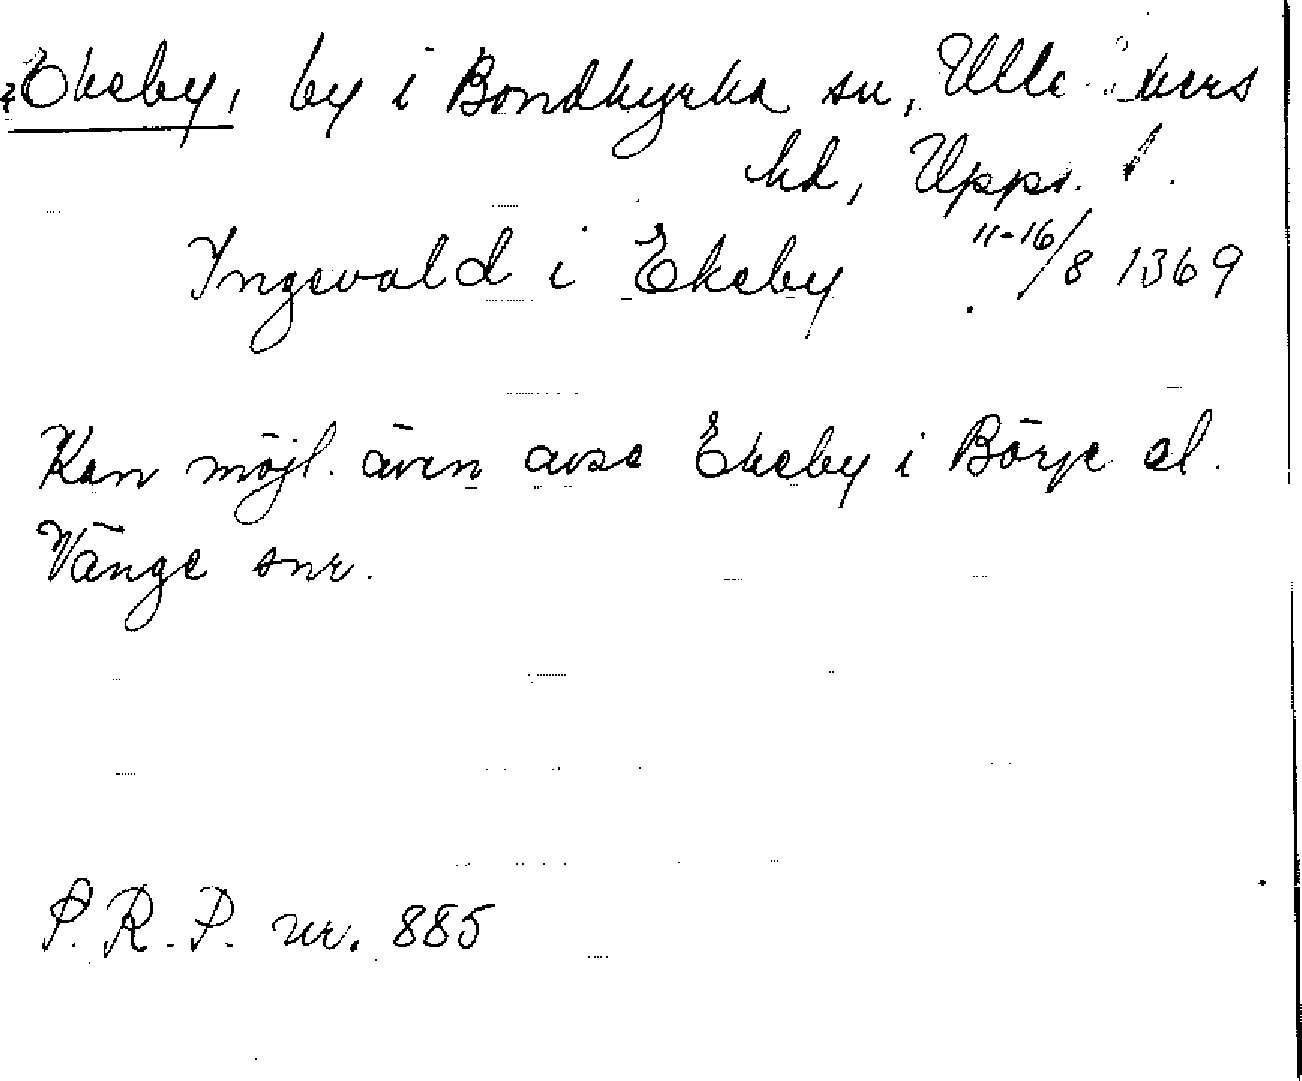 Ekeby, by i Bondkyrka sn, Ulleråkers
hd, Upps. l.
Ingevald i Ekeby 11-16/8 1369
Kan möjl. även avse Ekeby i Börje el.
Vänge snr.
P.R.P. nr. 885